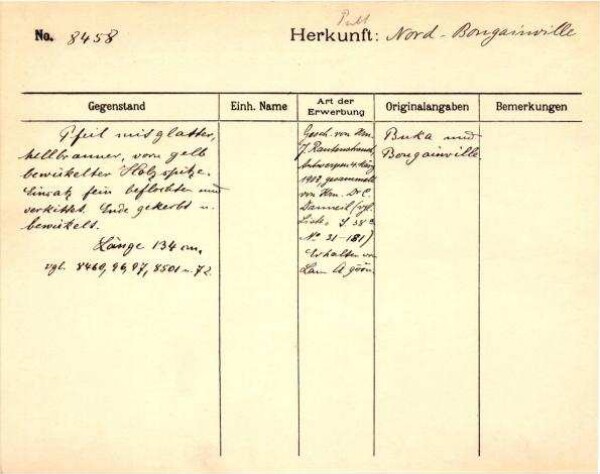 No. 8458
Herkunft: Nord-Bougainville
Gegenstand
Einh. Name
Art der Erwerbung
Originalangaben
Bemerkungen
Pfeil mit glatter,
hellbrauner, vorn gelb
bewickelter Holzspitze.
Einsatz fein beflochten und
verkittet. Ende gekerbt u.
bewickelt.
Länge 134 cm.
vgl. 8460, 96, 97, 8501 u. 72.
Gesch. von Hrn.
J. Rautenstrauch,
Antwerpen 4. März
gesammelt
von Hrn. Dr C.
(vgl.
Liste. S 38
No 31-181)
Erhalten von
Buka und
Bougainville